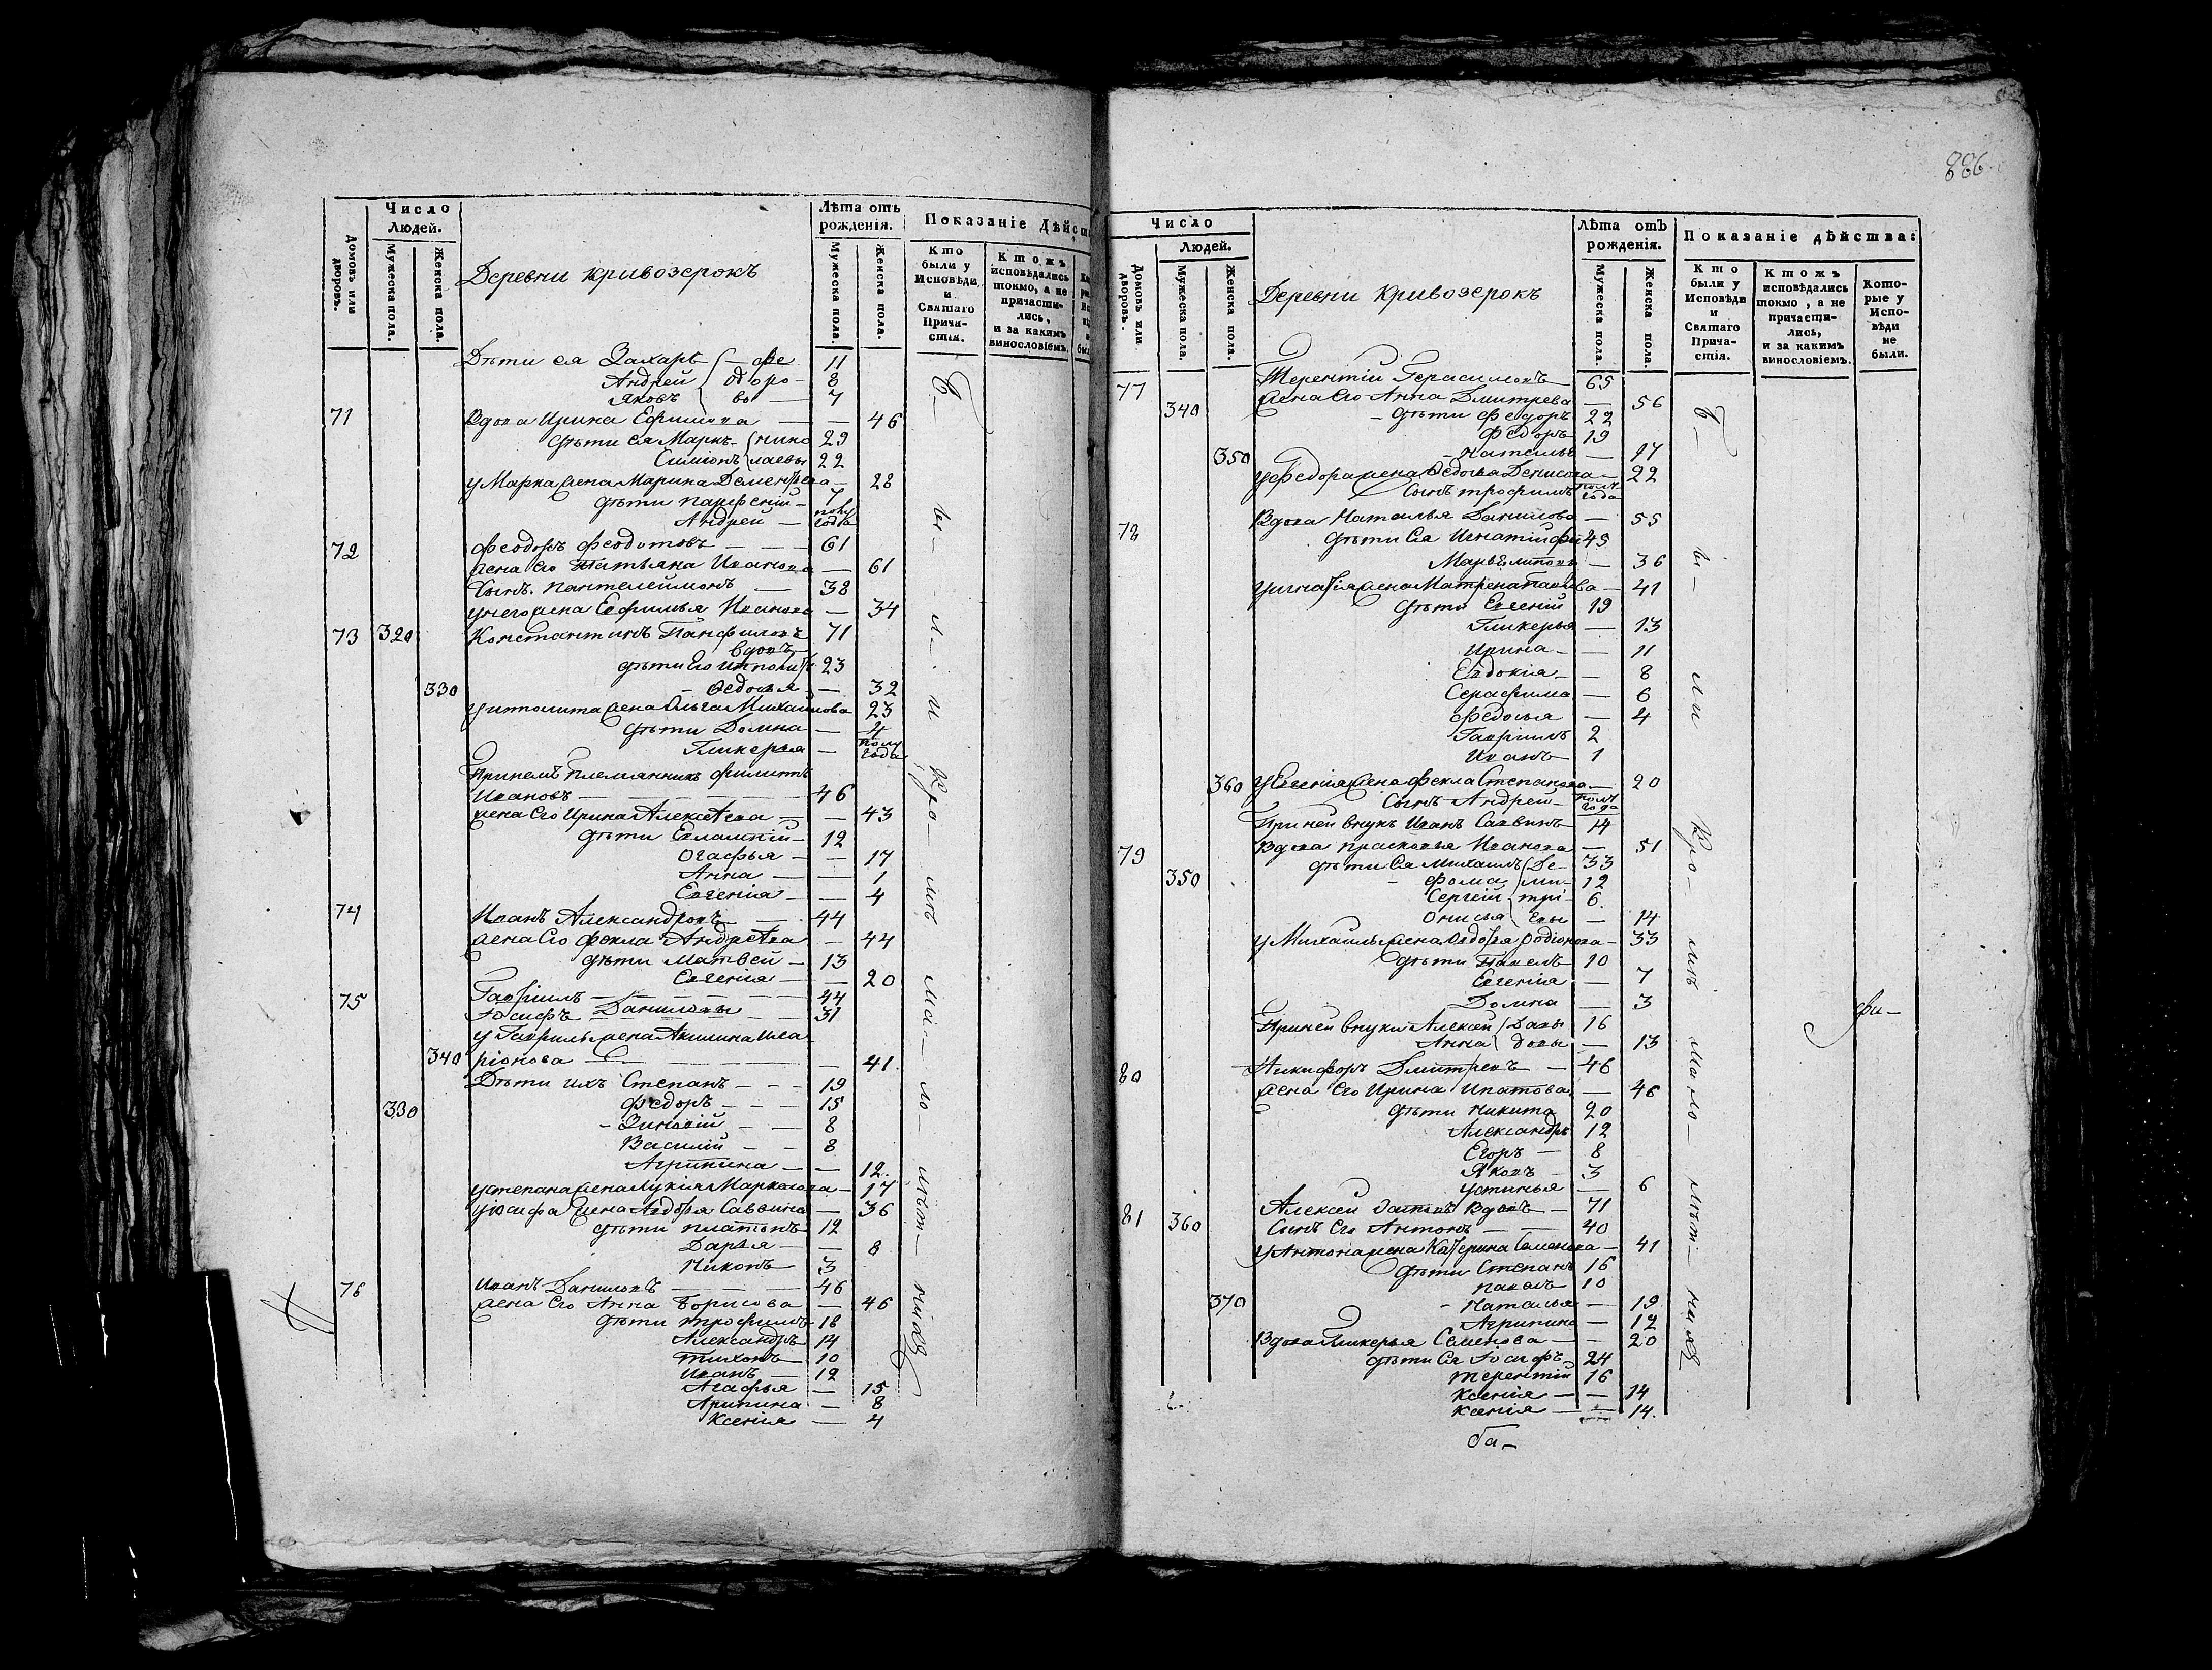 Число
Людей.
Домовъ или дворовъ.
Мужеска пола.
Женска пола.
Деревни Кривозерокъ
Лѣта отъ рожденія.
Мужеска пола.
Женска пола.
Показаніе Дѣйст
Кто были у Исповѣди и Святаго Прича-стія.
Ктожъ исповѣдались токмо, а не причасти-лись, и за какимъ винословіемъ.
Дѣти ея Захаръ Фе 11
Андрей одоро- 8
Яковъ вы 7
71 Вдова Ирина Ефимова — 46
дѣти ея Маркъ нико 29
Симіонъ лаевы 22
у Марка жена Марина Дементьева — 28
дѣти Парфеній — 7
Андрей — полу года
72 Феодоръ Феодотовъ — 61
жена его Татьяна Иванова — 61
Сынъ Пантелеймонъ — 38
у него жена Евфимья Иванова — 34
73 320 Константинъ Панфиловъ 71
вдовъ
дѣти его Иполитъ 23
330 – Федосья — 32
у иполита жена Ольга Михайлова 23
дѣти Домна — 4
Гликерья — полу года
При немъ племянникъ Филиппъ
Ивановъ — 46
жена его Ирина Алексѣева — 43
дѣти Евлампій — 12
Огафья — 17
Анна — 1
Евгенія — 4
74 Иванъ Александровъ — 44
жена его Фекла Андрѣева — 44
дѣти Матвей — 13
Евгенія — 20
75 Гавріилъ — 44
Іосифъ Даниловы 31
у Гаврилы жена Акилина Ила
340 ріонова — 41
Дѣти ихъ Степанъ — 19
330 Федоръ — 15
– Зиновій — 8
Василій — 8
Агрипина — 12
у степана жена Лукія Маркелова — 17
у юсифа жена Авдотья Саввина — 36
дѣти платонъ 12
Дарья — 8
Никонъ 3
76 Иванъ Даниловъ — 46
жена его Анна Борисова — 46
дѣти трофимъ 18
Александръ 14
Тихонъ 10
Иванъ — 12
Агафья — 15
Арипина — 8
Ксенія — 4
Б-
ы-
л-
и
Кро-
мѣ
ма-
ло-
лѣт-
нихъ
886.
Число
Людей.
Домовъ или дворовъ.
Мужеска пола.
Женска пола.
Деревни Кривозерокъ
Лѣта отъ рожденія.
Мужеска пола.
Женска пола.
Показаніе дѣйства:
Кто были у Исповѣди и Святаго Прича-стія.
Ктожъ исповѣдались токмо, а не причасти-лись, и за какимъ винословіемъ.
Кото-рые у Испо-вѣди не были.
77 Терентій Герасимовъ 65
340 жена его Анна Дмитрева — 56
– дѣти Федоръ 22
Федоръ 19
350 – Наталья — 17
у федора жена Федосья Денисова — 22
Сынъ трофимъ полъ года
78 Вдова Наталья Данилова — 55
дѣти ея Игнатій 45
— 36
у игнатія жена Матрена Павлова — 41
дѣти Евгеній 19
Гликерья — 13
Ирина — 11
Евдокія — 8
Серафима — 6
Федосья — 4
Гавріилъ 2
Иванъ 1
360 у Евгенія жена Фекла Степанова — 20
Сынъ Андрей — полъ года
При ней внукъ Иванъ Саввинъ 14
79 Вдова прасковья Иванова — 51
дѣти ея Михаилъ Де- 33
350 – Фома ми- 12
Сергій трі- 6.
Онисья евы — 14
у Михаилы жена Авдотья Родіонова — 33
дѣти Павелъ 10
Евгенія — 7
Домна — 3
При ней внуки Алексей Давы 16
Анна довы — 13
80 Никифоръ Дмитревъ — 46
жена его Ирина Ипатова — 46
дѣти Никита 20
Александръ 12
Егоръ — 8
Яковъ — 3
Устинья — 6
81 Алексей вдовъ — 71
360 Сынъ его Антонъ — 40
у Антона жена Катерина Семенова — 41
дѣти Степанъ 16
павелъ 10
370 – Наталья — 19
Агрипина — 12
Вдова Гликерья Семенова — 20
дѣти ея Іосифъ 24
терентій 16
Ксенія — 14
Ксенія — 14.
ба-
Б-
ы-
ли
Кро-
мѣ
мало-
лѣт-
нихъ
фи-